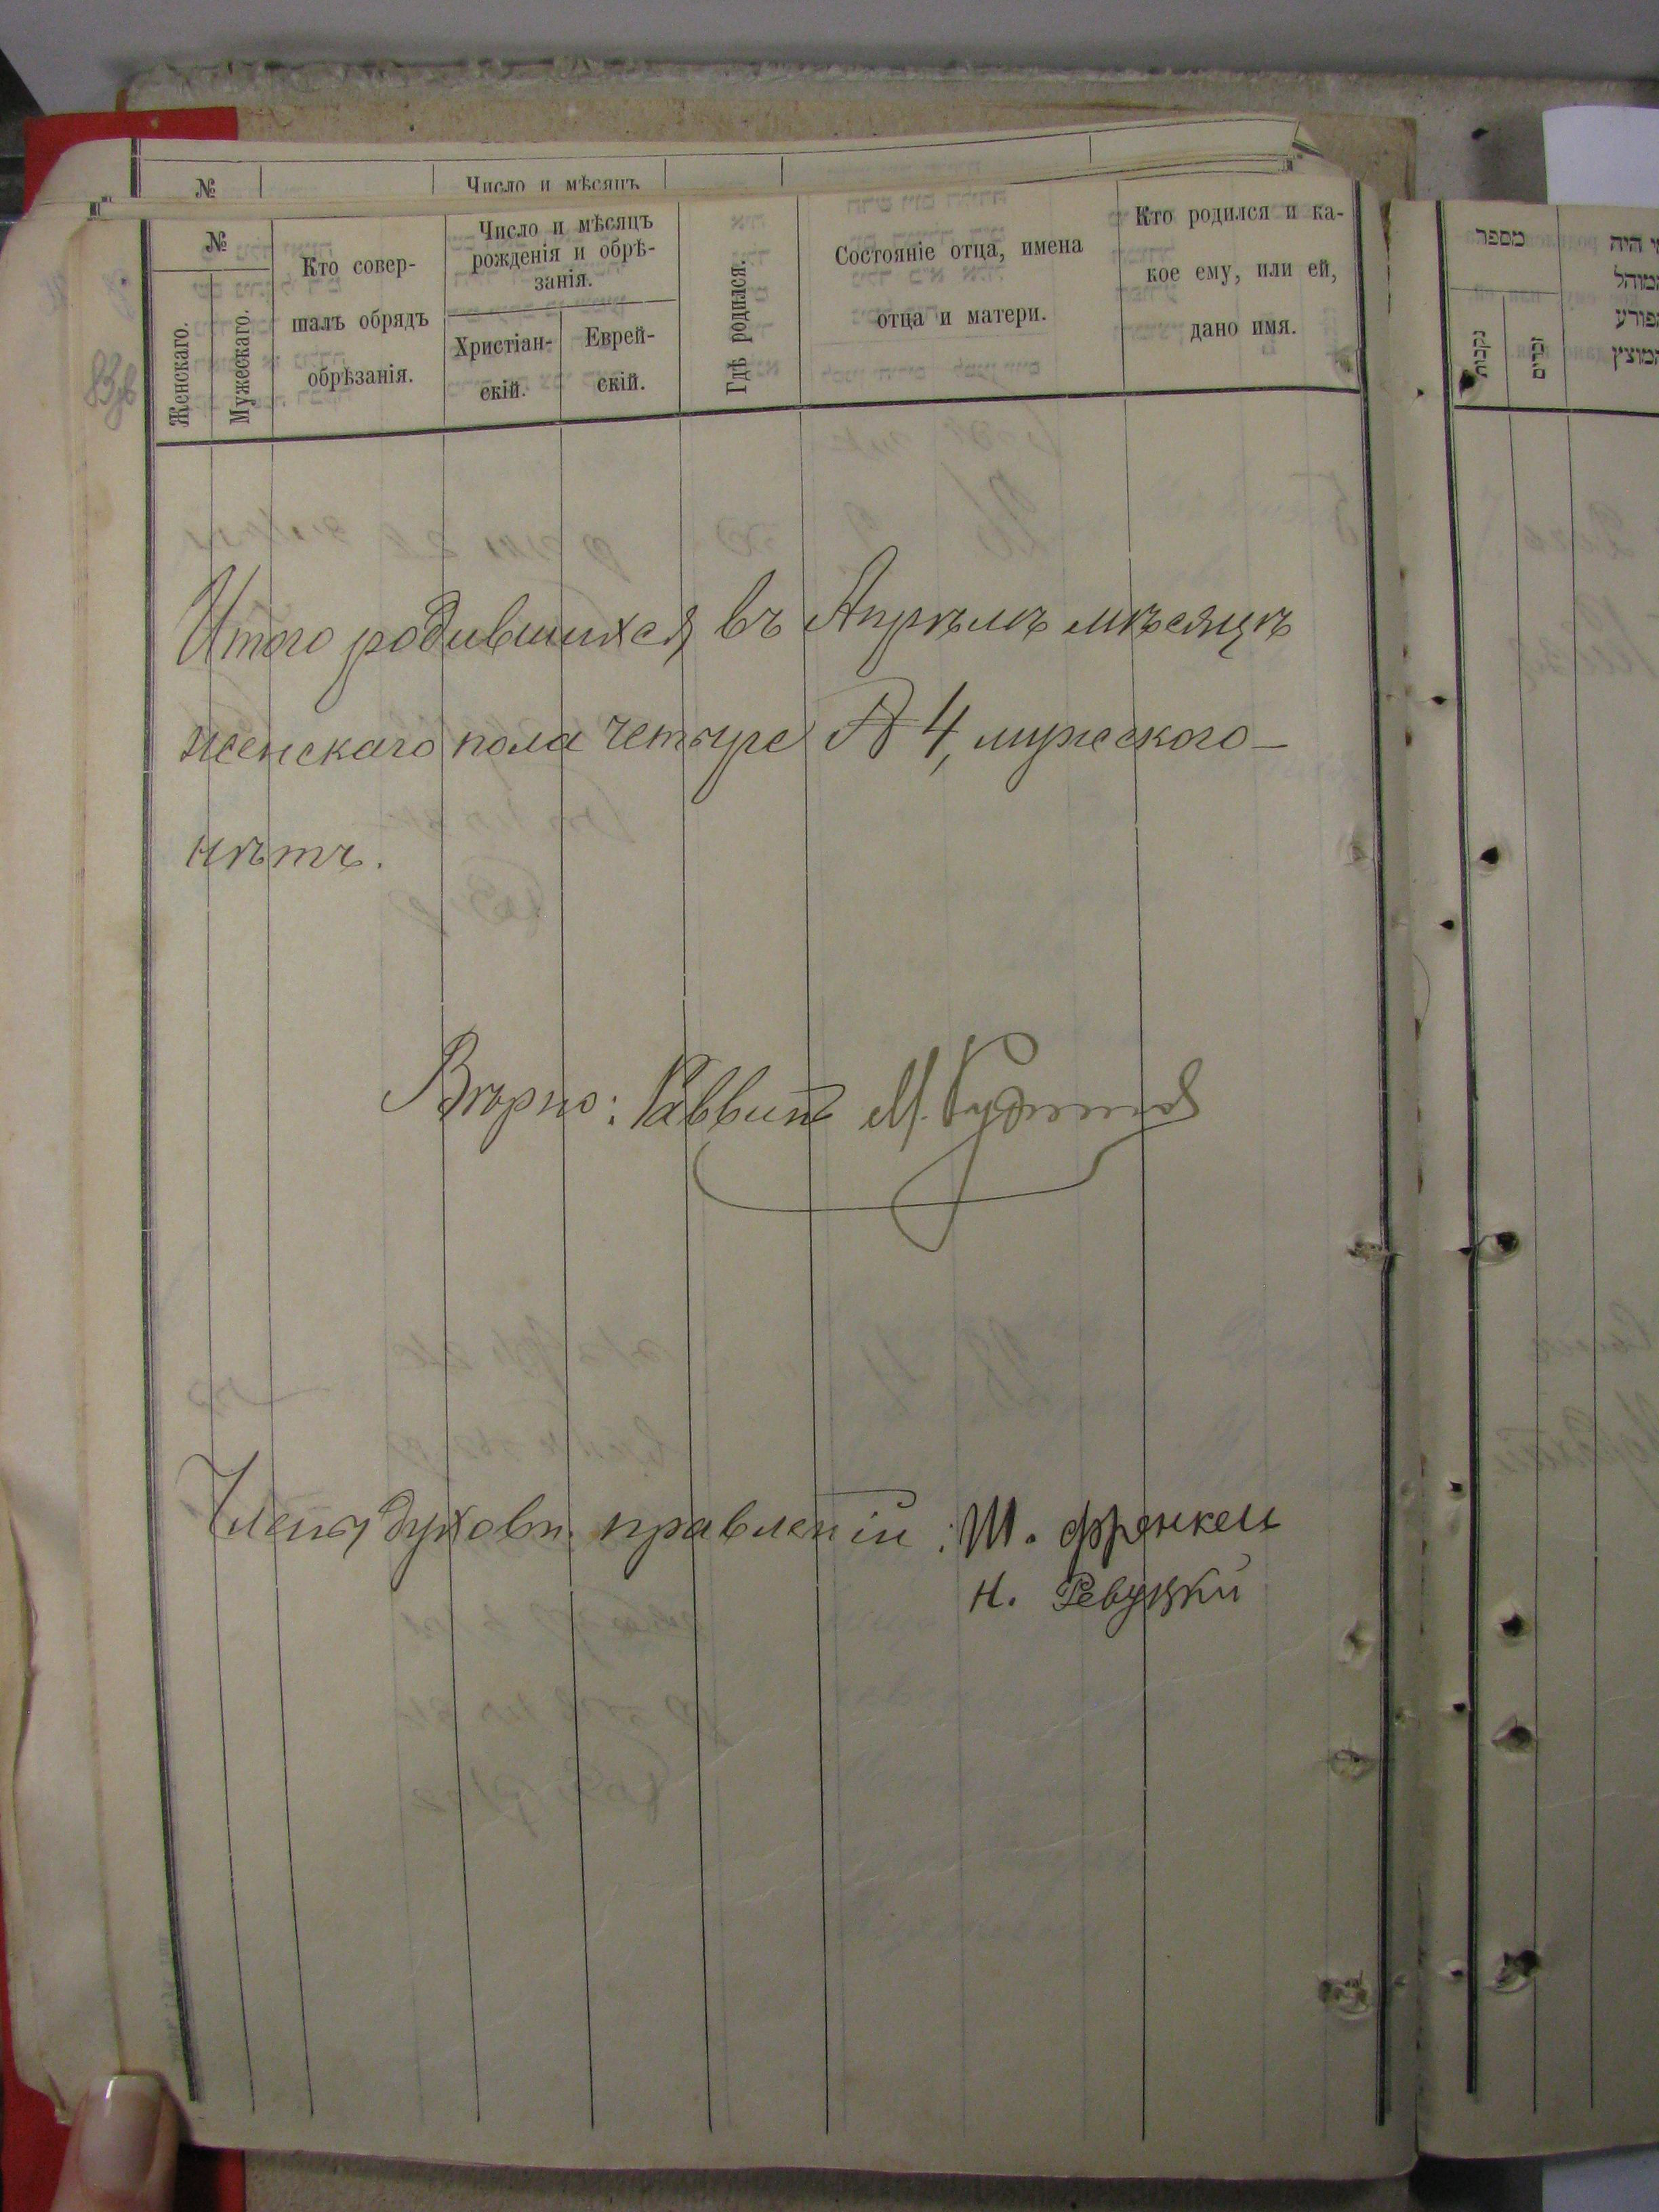 №
Число и мѣсяцъ
№
Женскаго.
Мужескаго.
Кто совер-
шалъ обрядъ
обрѣзанія.
Число и мѣсяцъ
рожденія и обрѣ-
занія.
Христіан-
скій.
Еврей-
скій.
Гдѣ родился.
Состояніе отца, имена
отца и матери.
Кто родился и ка-
кое ему, или ей,
дано имя.
Итого родившихся въ Апрѣлѣ мѣсяцѣ
женскаго пола четыре 4, мужского —
нѣтъ.
Вѣрно: Раввинъ М.
Члены духовн. правленія: Ш. Френкель
Н. Ревуцки
מספר
נקבות
זכרים
היה